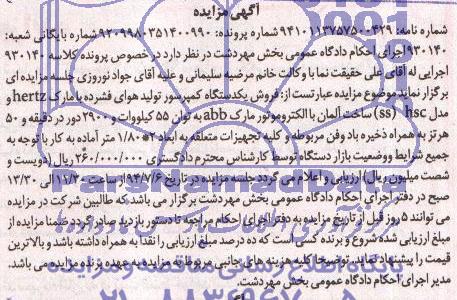 آگهی مزایده
شماره نامه: ۹۴۱۰۱۱۳۷۵۷۵۰۰۴۲۹ شماره پرونده: ۹۲۰۹۹۸۰۳۵۱۴۰۰۹۹۰ شماره بایگانی شعبه:
۹۳۰۱۴۰ اجرای احکام دادگاه عمومی بخش مهردشت در نظر دارد در خصوص پرونده کلاسه ۹۳۰۱۴۰
اجرایی له آقای علی حقیقت نما با وکالت خانم مرضیه سلیمانی و علیه آقای جواد نوروزی جلسه مزایده ای
برگزار نماید موضوع مزایده عبارتست از: فروش یکدستگاه کمپرسور تولید هوای فشرده با مارک hertz و
مدل hsc (ss) ساخت آلمان با الکتروموتور مارک abb به توان ۵۵ کیلووات و ۲۹۰۰ دور در دقیقه و ۵۰
هرتز به همراه ذخیره باد وفن مربوطه و کلیه تجهیزات متعلقه به ابعاد ۲*۱/۸۰ متر آماده به کار با توجه به
جمیع شرایط ووضعیت بازار دستگاه توسط کارشناس محترم دادگستری ۲۶۰/۰۰۰/۰۰۰ ریال (دویست و
شصت میلیون ریال) ارزیابی و اعلام می گردد جلسه مزایده در تاریخ ۹۴/۷/۶ از ساعت ۱۱/۳۰ الی ۱۳/۳۰
صبح در دفتر اجرای احکام دادگاه عمومی بخش مهردشت برگزار می باشد که طالبین شرکت در مزایده
می توانند ۵ روز قبل از تاریخ مزایده به دفتر اجرای احکام مراجعه تا دستور بازدید صادر گردد ضمنا مزایده از
مبلغ ارزیابی شده شروع و برنده کسی است که ده درصد مبلغ ارزیابی را نقدا به همراه داشته باشد و بالاترین
قیمت را پیشنهاد نماید. توضیحا کلیه هزینه های جانبی مربوطه مزایده به عهده برنده مزایده می باشد.
مدیر اجرای احکام دادگاه عمومی بخش مهردشت.
ParsNamadData
پایگاه اطلاع رسانی مناقصه و مزایده